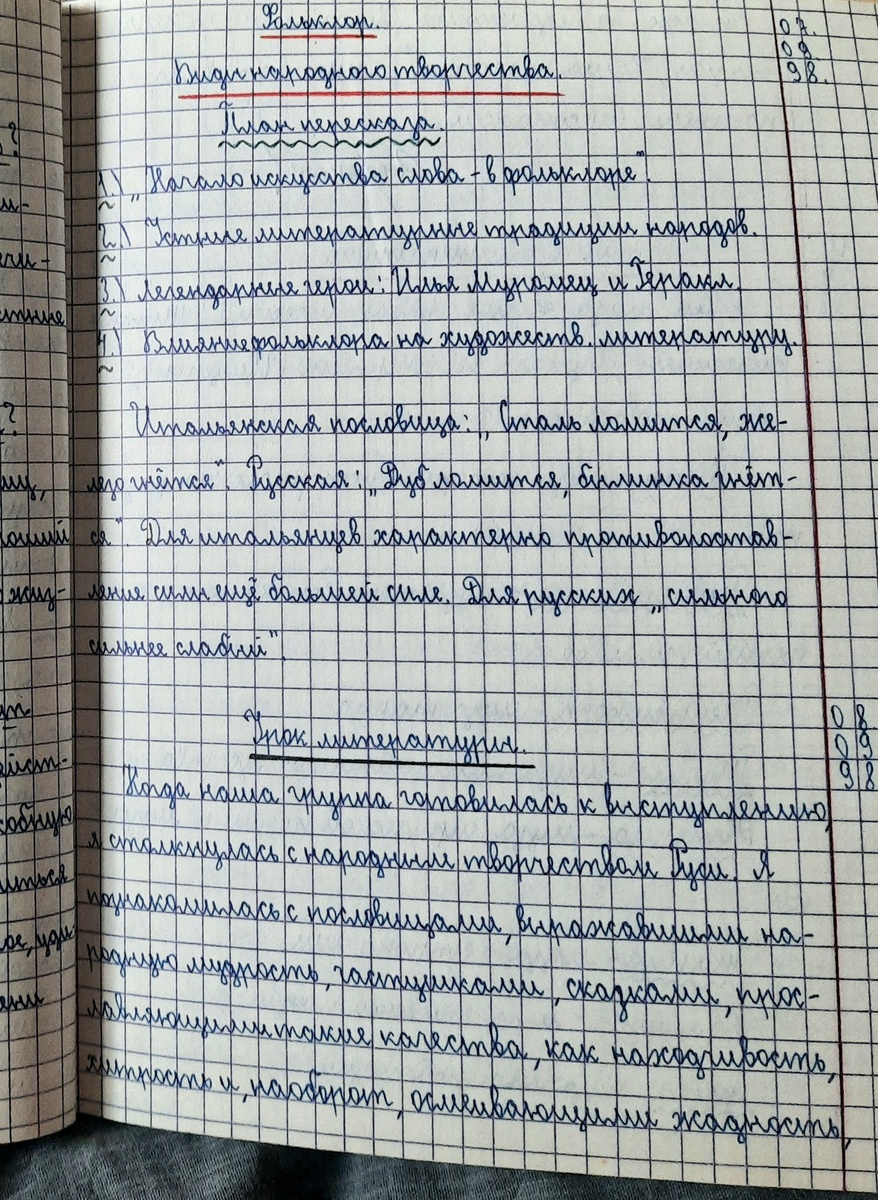 Фольклор.
07.
09
98.
Виды народного творчества.
План пересказа.
1.) „Начало искусства слова - в фольклоре".
2.) Устные литературные традиции народов.
3.) Легендарные герои: Илья Муромец и Геракл.
4.) Влияние фольклора на художеств. литературу.
Итальянская пословица: „Сталь ломится, же-
лезо гнётся". Русская: „Дуб ломится, былинка гнёт-
ся". Для итальянцев характерно противопостав-
ление силы ещё большей силе. Для русских „сильного
сильнее слабый".
08
09
98
Урок литературы.
Когда наша группа готовилась к выступлению,
я столкнулась с народным творчеством Руси. Я
познакомилась с пословицами, выражавшими на-
родную мудрость, частушками, сказками, прос-
лавляющими такие качества, как находчивость,
хитрость и, наоборот, осмеивающими жадность,